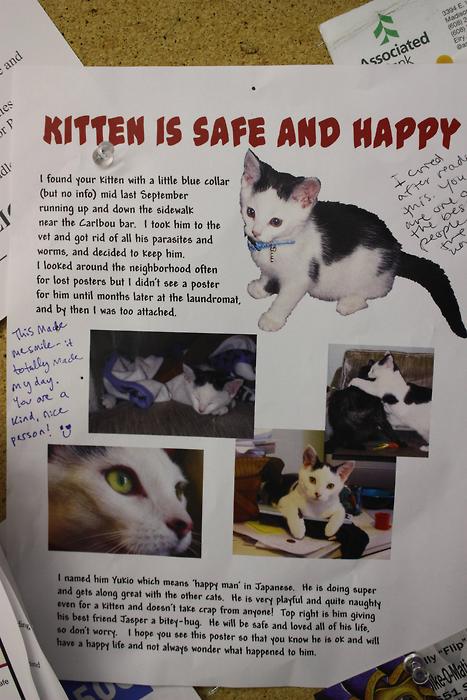 KITTEN IS SAFE AND HAPPY
I found your kitten with a little blue collar
(but no info) mid last September
running up and down the sidewalk
near the Caribou bar. I took him to the
vet and got rid of all his parasites and
worms, and decided to keep him.
I looked around the neighborhood often
for lost posters but I didn't see a poster
for him until months later at the laundromat,
and by then I was too attached.
I cried
after reading
this. You
are one of
the best
people
This made
me smile - it
totally made
my day.
You are a
kind, nice
person!
I named him Yukio which means 'happy man' in Japanese. He is doing super
and gets along great with the other cats. He is very playful and quite naughty
even for a kitten and doesn't take crap from anyone! Top right is him giving
his best friend Jasper a bite-hug. He will be safe and loved all of his life,
so don't worry. I hope you see this poster so that you know he is ok and will
have a happy life and not always wonder what happened to him.
Associated
3394 E.
Madison
(608)
(608)
and